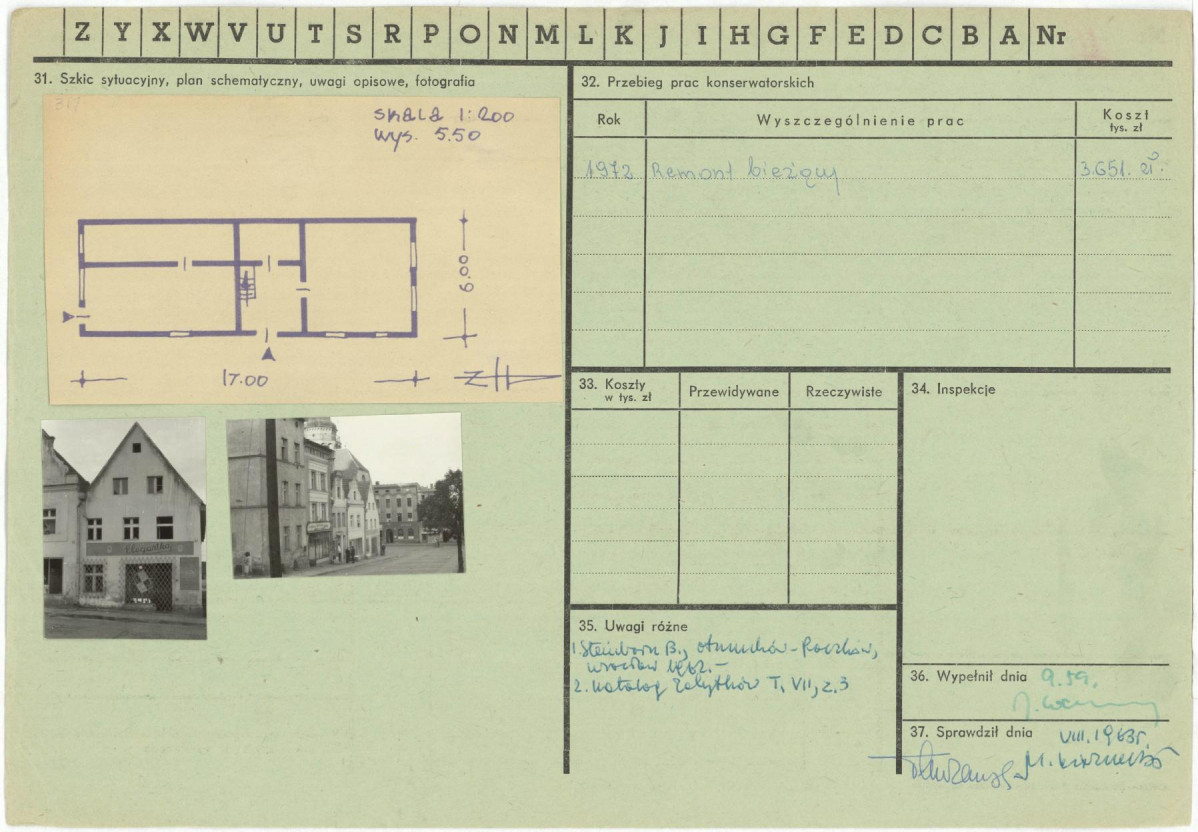 Z Y X W V U T S R P O N M L K J I H G F E D C B A Nr
31. Szkic sytuacyjny, plan schematyczny, uwagi opisowe, fotografia
skala 1:200
wys. 5.50
6.00
17.00
32. Przebieg prac konserwatorskich
Rok
Wyszczególnienie prac
Koszt
tys. zł
1972 Remont bieżący 3.651. zł.
33. Koszty
w tys. zł
Przewidywane
Rzeczywiste
34. Inspekcje
35. Uwagi różne
1. Steinborn B., Otmuchów-Paczków,
Wrocław
2. Katalog Zabytków T. VII, z. 3
36. Wypełnił dnia 9.59.
37. Sprawdził dnia VIII. 1963r.